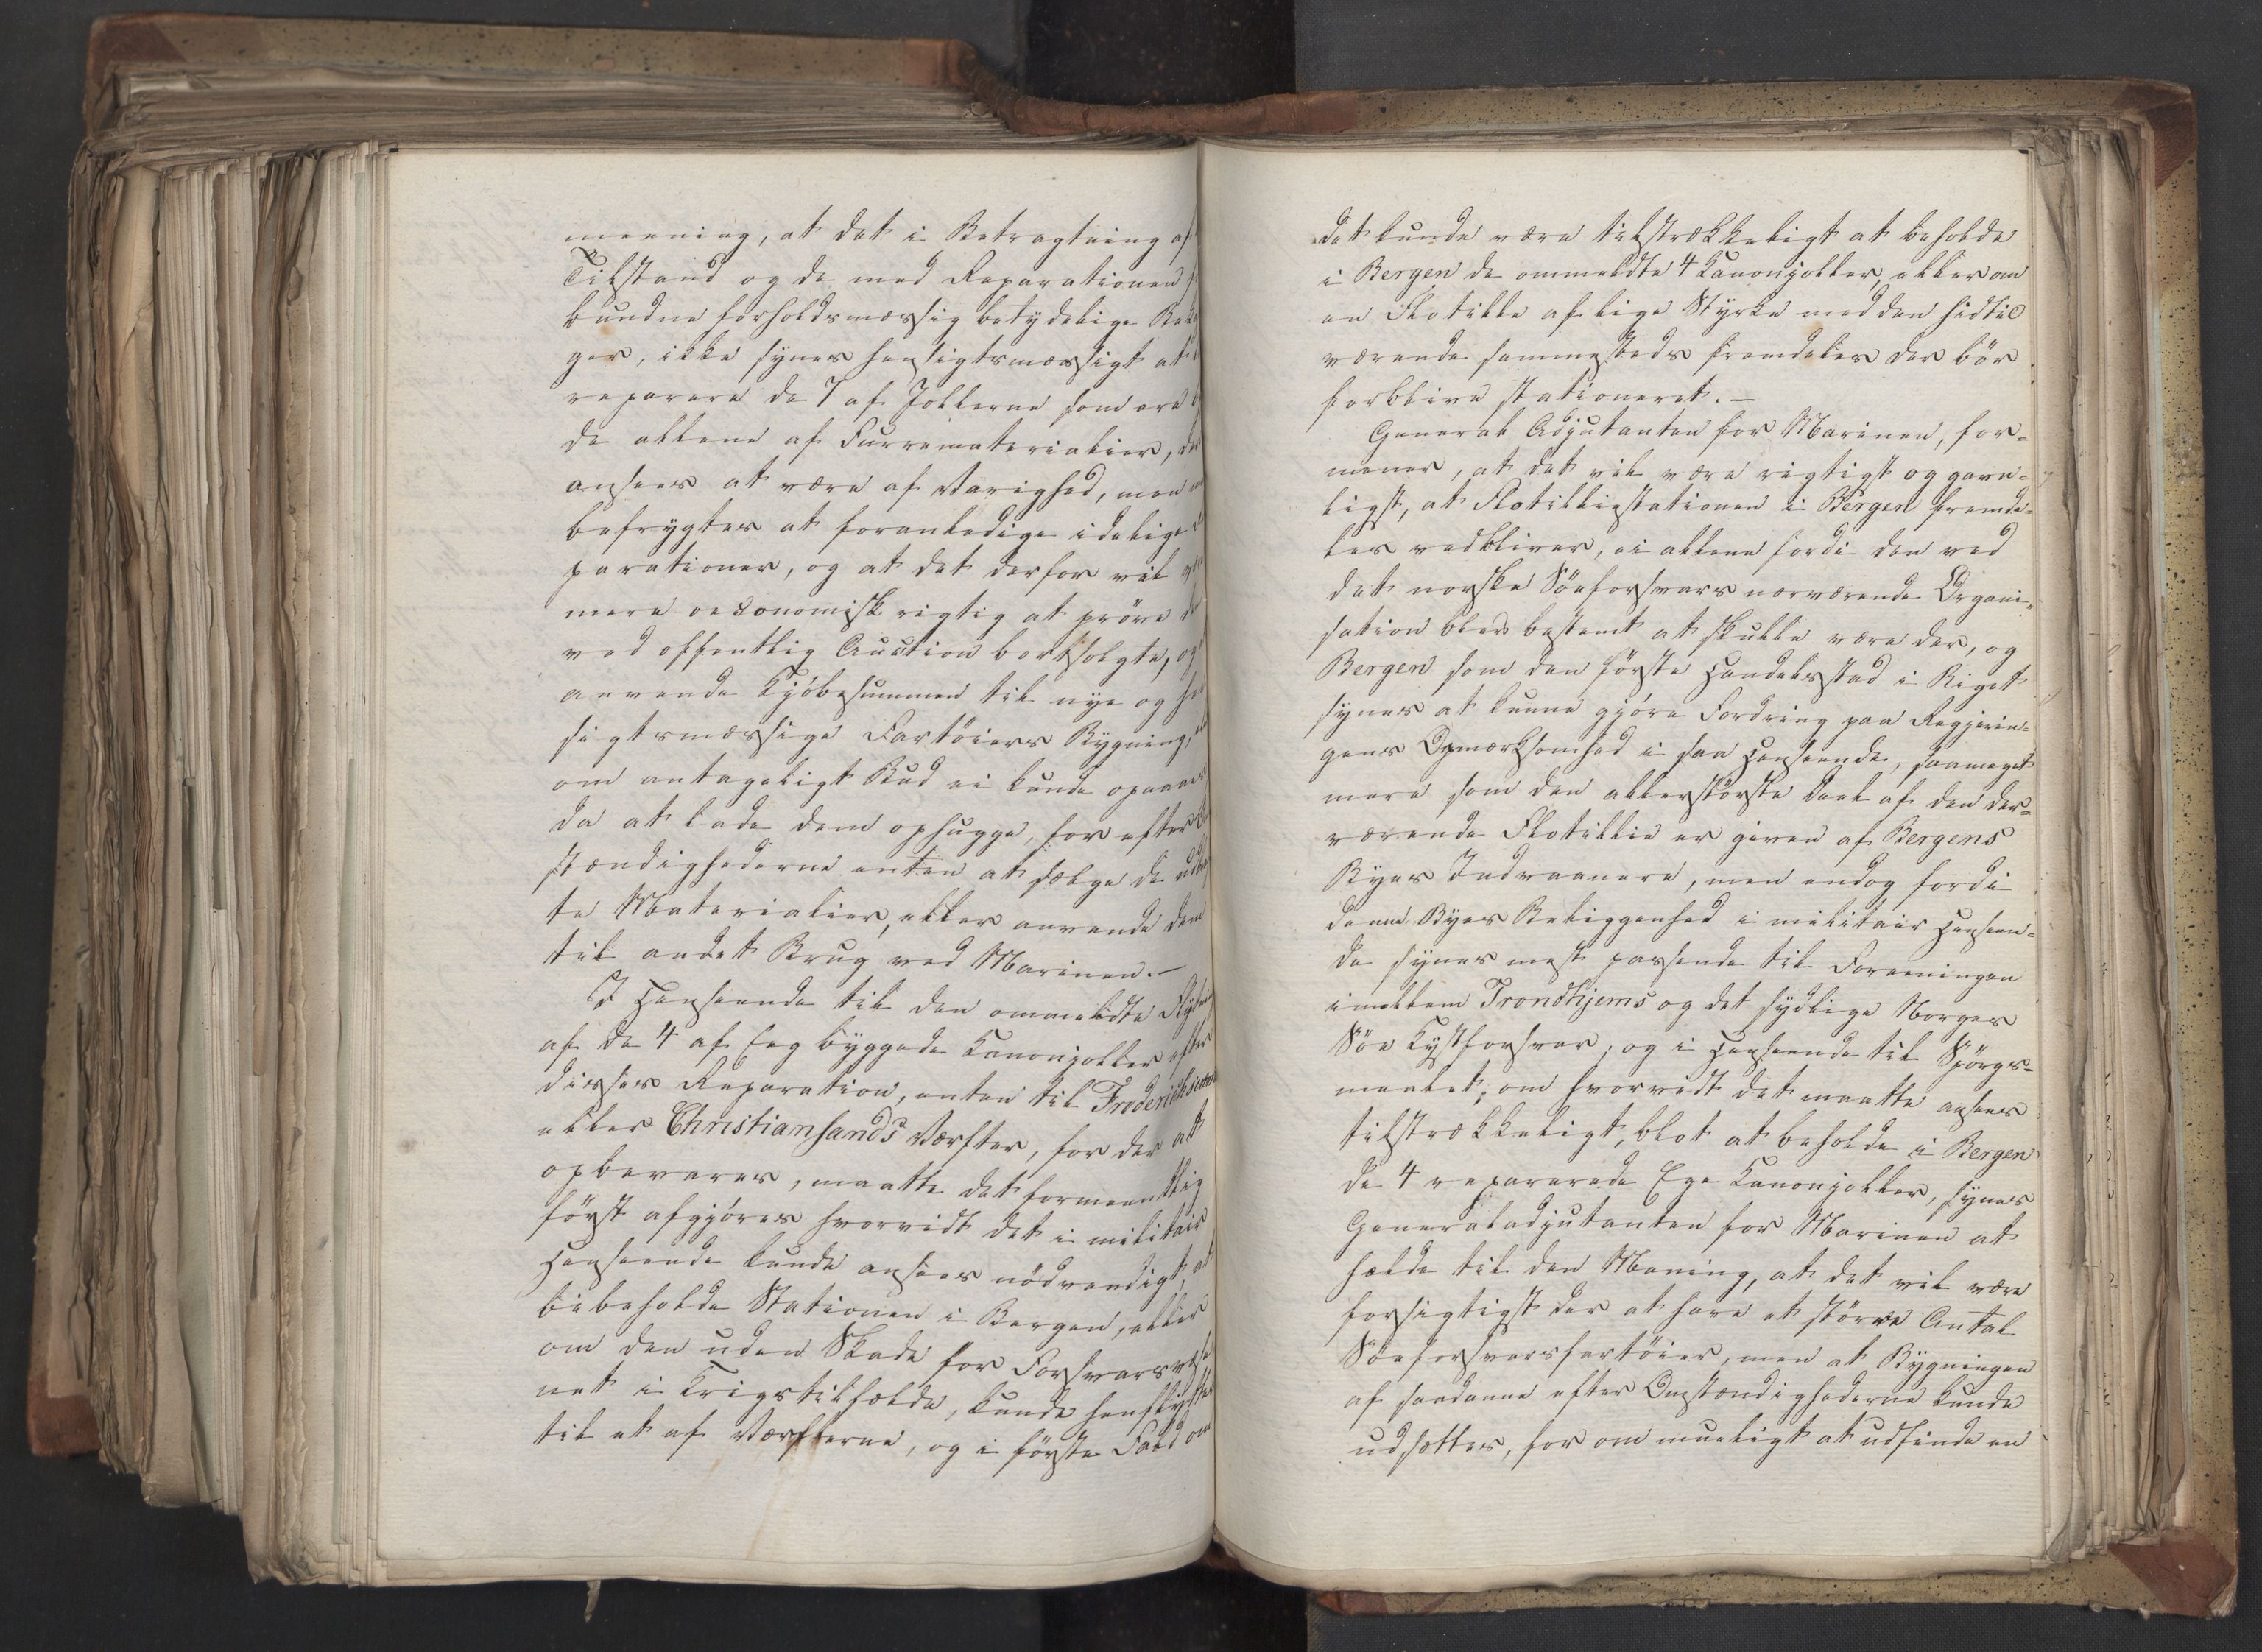 meening, at det i Betragtning af
Tilstand og de med Reparationen
bundne forholdsmæssig betydelige
ger, ikke synes hensigtsmæssigt at
reparere de 7 af Jollerne som ere
de allene af Furrematerialier,
ansees at være af Varighed, men
befrygtes at foranledige idelige
parationer, og at det derfor vil
mere oeconomisk rigtig at pröve
ved offentlig Auction bortsolgte, og
anvende Kjöbesummen til nye og
sigtsmæssige Fartöiers Bygning,
om antageligt Bud ei kunde opnaaes
da at lade dem ophugge, for efter
stændighederne enten at sælge de
te Materialier, eller anvende dem
til andet Brug ved Marinen.—
I Henseende til den ommeldte
af de 4 af Eeg byggede Kanonjoller efter
disses Reparation, enten til
eller Christiansands Værfter, for der at
opbevares, maatte det formeentlig
först afgjöres hvorvidt det i militair
Henseende kunde ansees nödvendigt, at
bibeholde Stationen i Bergen, eller
om den uden Skade for Forsvarsvæse
net i Krigstilfælde, kunde henflyttes
til et af Værfterne, og i förste Fald om
det kunde være tilstrækkeligt at beholde
i Bergen de ommeldte 4 Kanonjoller, eller om
en Flotille af lige Styrke med den hidtil
værende sammesteds fremdeles der bör
forblive stationeret.—
General Adjutanten for Marinen, for=
mener, at det vil være rigtigst og gavn=
ligst, at Flotilliestationen i Bergen fremde=
les vedbliver, ei allene fordi den ved
det norske Söeforsvars nærværende Organi=
sation blev bestemt at skulle være der, og
Bergen som den förste Handelsstad i Riget
synes at kunne gjöre Fordring paa Regjerin=
gens Opmærksomhed i saa Henseende, saameget
mere som den allerstörste Deel af den der=
værende Flotillie er given af Bergens
Byes Indvaanere, men endog fordi
denne Byes Beliggenhed i militair Henseen=
de synes mest passende til Foreeningen
imellem Trondhjems og det sydlige Norges
Söe Kystforsvar; og i Henseende til Spörgs=
maalet, om hvorvidt det maatte ansees
tilstrækkeligt, blot at beholde i Bergen
de 4 reparerede Ege Kanonjoller, synes
Generaladjutanten for Marinen at
helde til den Mening, at det vil være
forsigtigst der at have et större Antal
Söeforsvarsfartöier, men at Bygningen
af saadanne efter Omstændighederne kunde
udsættes, for om mueligt at udfinde en